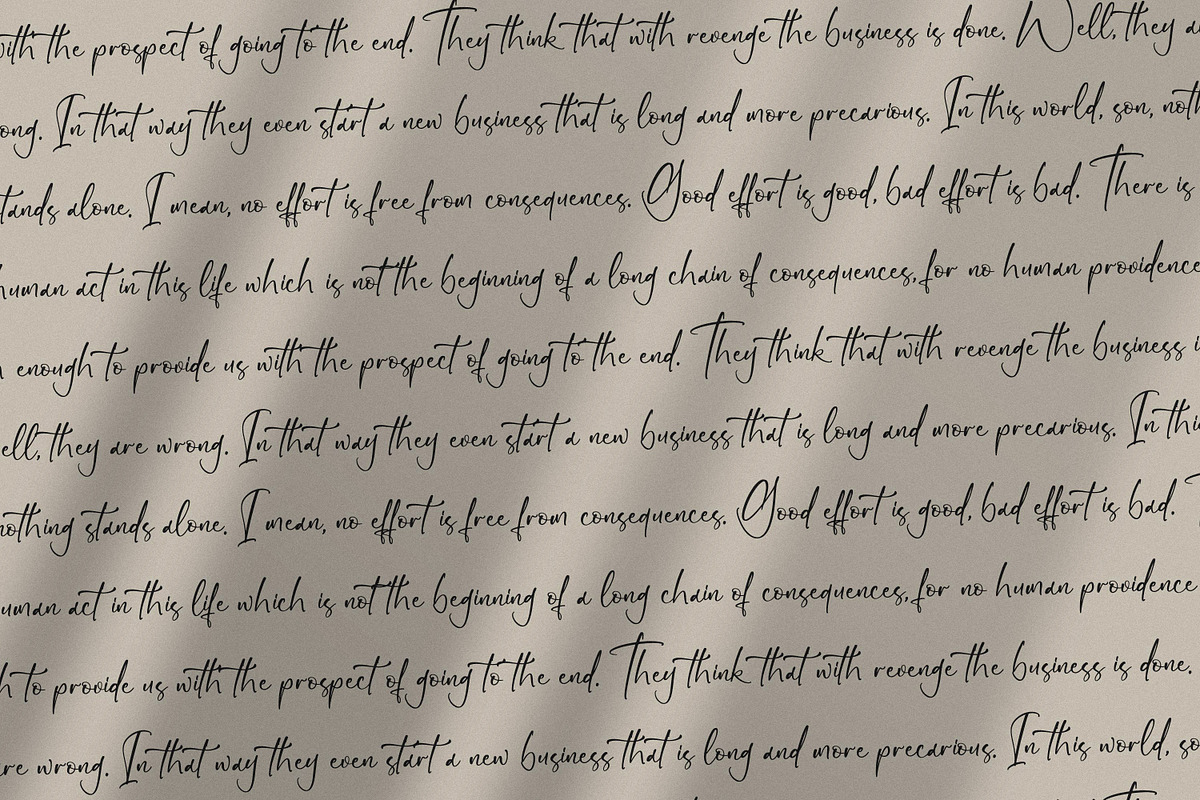 with the prospect of going to the end. They think that with revenge the business is done. Well, they a
ong. In that way they even start a new business that is long and more precarious. In this world, son, noth
tands alone. I mean, no effort is free from consequences. Good effort is good, bad effort is bad. There is
human act in this life which is not the beginning of a long chain of consequences, for no human providence
enough to provide us with the prospect of going to the end. They think that with revenge the business i
ell, they are wrong. In that way they even start a new business that is long and more precarious. In this
nothing stands alone. I mean, no effort is free from consequences. Good effort is good, bad effort is bad.
uman act in this life which is not the beginning of a long chain of consequences, for no human providence
h to provide us with the prospect of going to the end. They think that with revenge the business is done.
re wrong. In that way they even start a new business that is long and more precarious. In this world, so